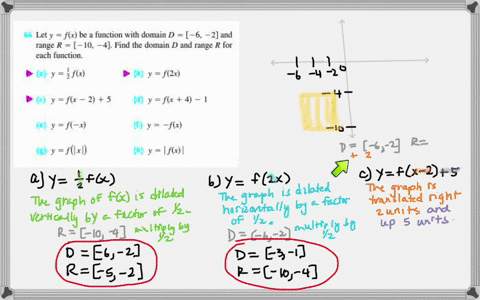 64 Let y = f(x) be a function with domain D = [-6, -2] and
range R = [-10, -4]. Find the domain D and range R for
each function.
(a) y = ½ f(x)
(b) y = f(2x)
(c) y = f(x - 2) + 5
(d) y = f(x + 4) - 1
(e) y = f(-x)
(f) y = -f(x)
(g) y = f(|x|)
(h) y = |f(x)|
-6 -4 -2 0
-4
-10
D = [-6,-2] R=
+ 2
a) y = ½ f(x)
The graph of f(x) is dilated
vertically by a factor of ½.
R = [-10, -4] multiply by
½
D = [6, -2]
R = [-5, -2]
b) y = f(2x)
The graph is dilated
horizontally by a factor
of ½.
multiply by
½
D = [-6, -2]
D = [-3, -1]
R = [-10, -4]
c) y = f(x-2)+5
The graph is
translated right
2 units and
up 5 units.